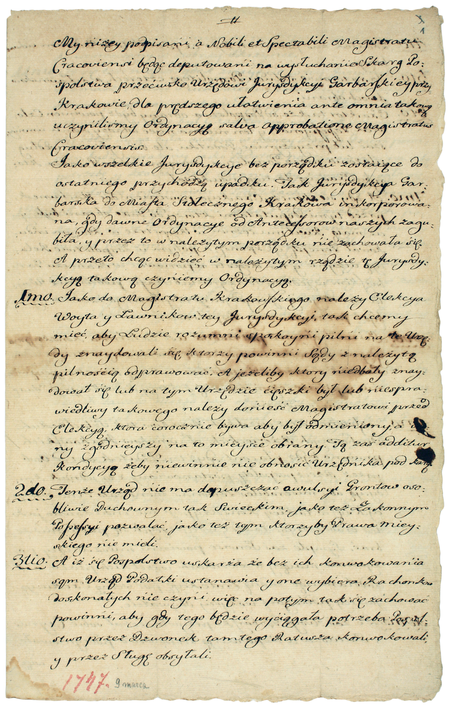 My niżey podpisani a Nobili et Spectabili Magistratu
Cracoviensi będąc deputowani na wysłuchanie Skarg Po-
spolstwa przeciwko Urzędowi Jurysdykcyi Garbarskiey przy
Krakowie, dla prędszego ułatwienia ante omnia takową
uczyniliśmy Ordynacyą salva approbatione Magistratus
Cracoviensis.
Jako wszelkie Jurysdykcye bez porządku zostaiące do
ostatniego przychodzą upadku. Tak Jurysdykcya Gar-
barska do Miasta Stołecznego Krakowa inkorporowa-
na, gdy dawne Ordynacye od Antecessorow naszych zagu-
biła, y przez to w należytym porządku nie zachowała się
A przeto chcąc widzieć w należytym rządzie tę Jurysdy-
kcyą takową czyniemy Ordynacyą.
1mo. Jako do Magistratu Krakowskiego należy Elekcya
Woyta y Ławnikow tey Jurysdykcyi, tak chcemy
mieć, aby Ludzie rozumni spokoyni pilni na te Urzę-
dy znaydowali się, ktorzy powinni Sądy z należytą
pilnością odprawować. A jeżeliby ktory niedbały znay-
dował się lub na tym Urzędzie ciężki był lub niespra-
wiedliwy takowego należy donieść Magistratowi przed
Elekcyą, ktora corocznie bywa aby był odmieniony a in-
ny zgodnieyszy na to mieysce obrany. Tą zaś additur
Kondycyą żeby niewinnie nie obnosić Urzędnika pod
2do. Tenże Urząd nie ma dopuszczać awulsyi Gruntow oso-
bliwie Duchownym tak Swieckim, jako też Zakonnym
Possessyi pozwalać, jako też tym ktorzyby Prawa miey-
skiego nie mieli.
3tio. A iż się Pospolstwo uskarża że bez ich konwokowania
sąm Urząd Podatki ustanawia y one wybiera, Rachunkow
doskonałych nie czyni więc na potym tak się zachować
powinni, aby gdy tego będzie wyciągała potrzeba Pospol-
stwo przez Dzwonek tamtego Ratusza konwokowali
y przez Sługę obsyłali.
1747. 9 marca